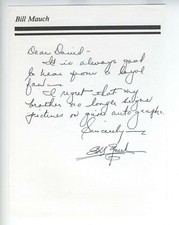 Bill Mauch
Dear David -
It is always good
to hear from a loyal
fan -
I regret that my
brother no longer signs
pictures or gives autographs
Sincerely -
Bill Mauch